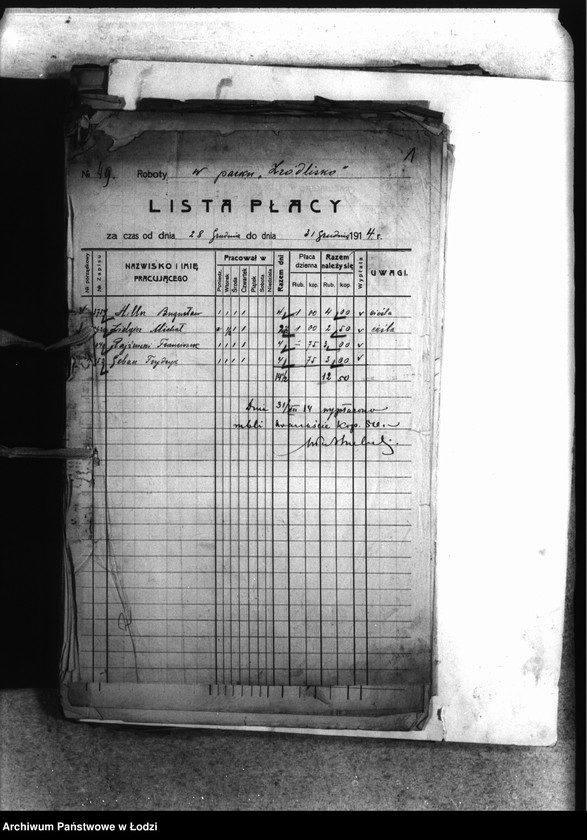 1
№ 49. Roboty w parku „Źródlisko"
LISTA PŁACY
za czas od dnia 28 Grudnia do dnia 31 Grudnia 1914 r.
№ porządkowy № Zapisu NAZWISKO I IMIĘ PRACUJĄCEGO Pracował w Poniedz. Wtorek Środa Czwartek Piątek Sobota Niedziela Razem dni Płaca dzienna Rub. kop. Razem należy się Rub. kop. Wypłata UWAGI.
Bogusław 1 1 1 1 4 1 00 4 00 v cieśla
Michał 1 1 2½ 1 00 2 50 v cieśla
Franciszek 1 1 1 1 4 – 75 3 00 v
Fryderyk 1 1 1 1 4 75 3 00 v
14½ 12 50
Dnia 31/XII 14 wypłacono
rubli dwanaście kop. 50.–
Archiwum Państwowe w Łodzi